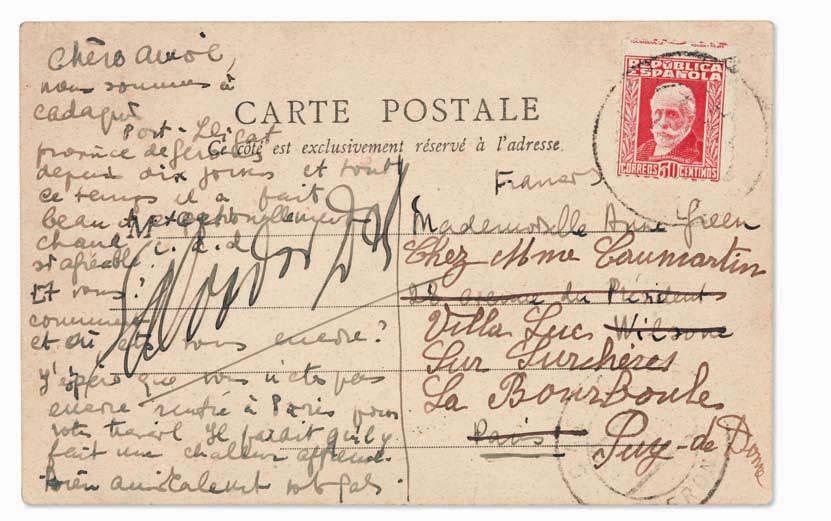 Chère amie,
nous sommes à
Cadaqués
Port-Lligat
province de
depuis dix jours et tout
ce temps il a fait
beau exceptionellement
chaud c. a. d
agréable.
Et vous?
comment
et où vous encore?
j'espère que vous n'etes pas
encore rentré à Paris pour
votre travail Il parait qu'il y
fait une chaleur affreuse.
bien amicalement votre
CARTE POSTALE
Ce côté est exclusivement réservé à l'adresse.
M
REPÚBLICA
ESPAÑOLA
CORREOS 30 CENTIMOS
France
Mademoiselle Anne Green
Chez Mme Caumartin
28 avenue du Président
Villa Luc Wilson
Sur Surchères
La Bourboule
Paris Puy-de Dome